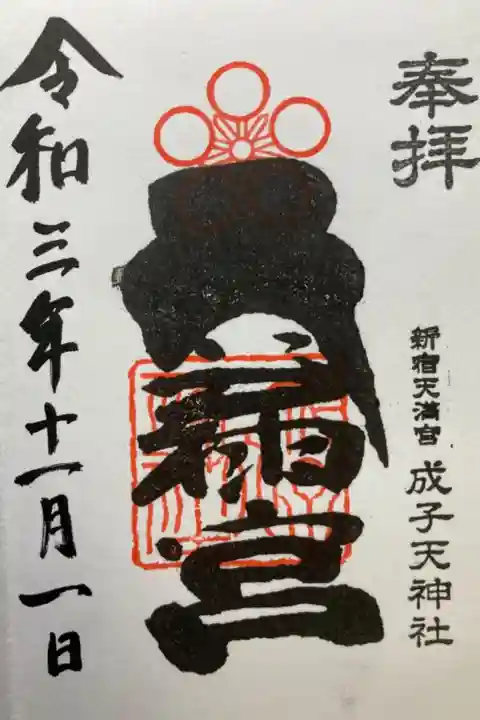 奉拝
新宿天満宮 成子天神社
宮
令和三年十一月一日